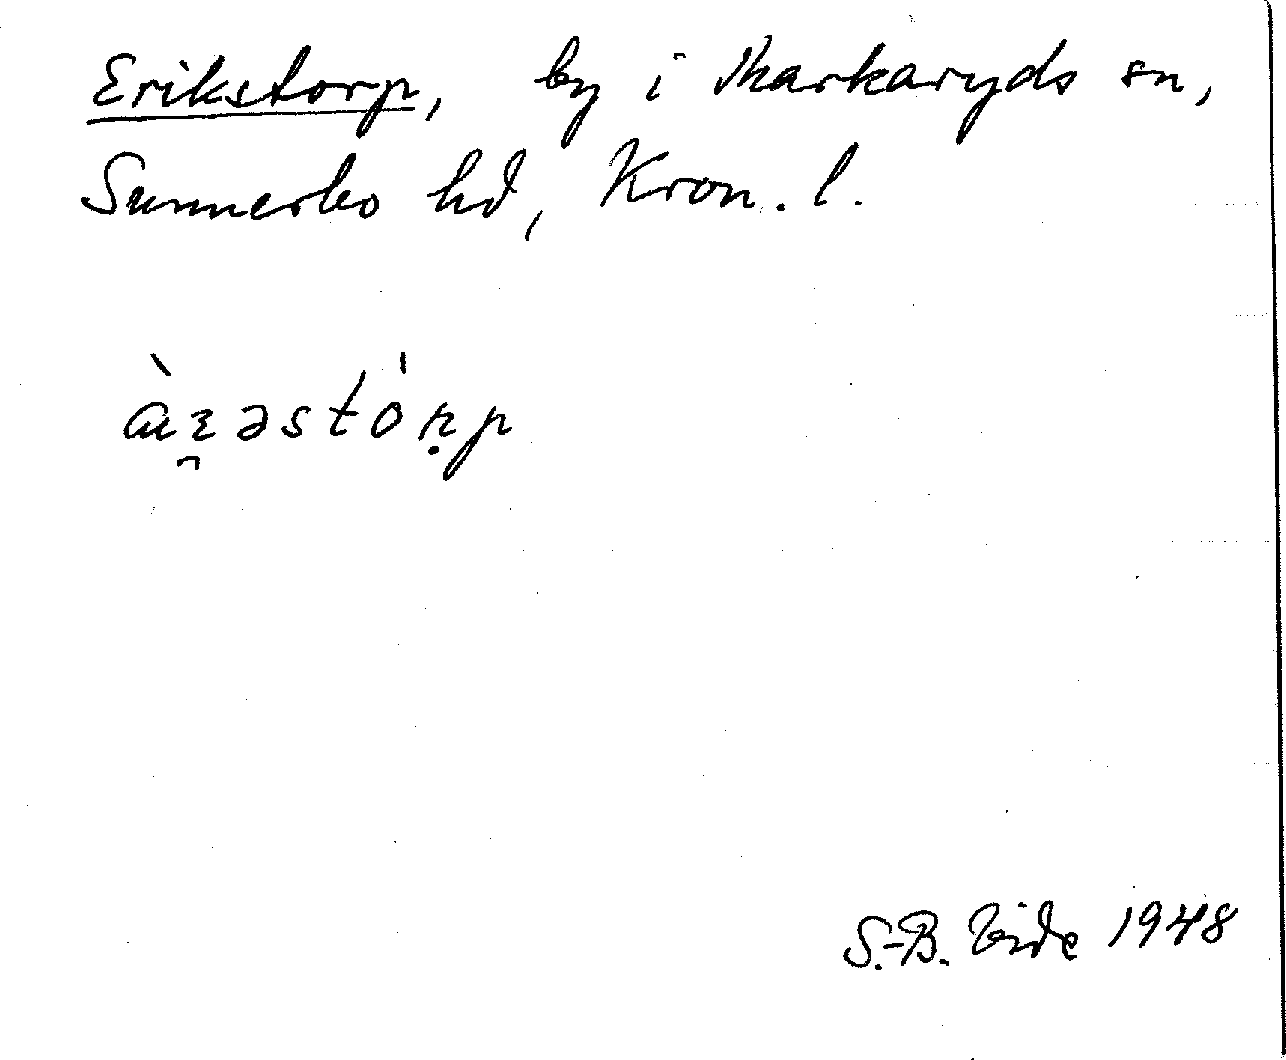 Erikstorp, by i Markaryds sn,
Sunnerbo hd, Kron. l.
S.-B. Vide 1948